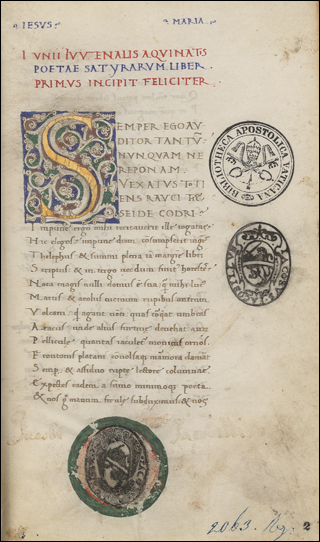 IESVS MARIA
IVNII IVVENALIS AQVINATIS
POETAE SATYRARVM LIBER
PRIMVS INCIPIT FELICITER
SEMPER EGO AV
DITOR TANTV̄
NVNQVAM NE
REPONAM.
VEXATVS TOTI
ENS RAVCI THE
SEIDE CODRI
Impune ergo mihi recitauerit ille togatas
Hic elegos impune diem consumpserit ingēs
Telephus & summi plena iā margine libri
Scriptus & in tergo necdum finit horestes
Nota magis nulli domus ē sua, q̄ mihi lucus
Martis & aeoliis uicinum rupibus antrum
Vulcani quid agant uenti quas torqueat umbras
Aeacus unde alius furtiuae deuehat aurū
Pelliculae quantas iaculet monicus ornos
Frontonis platani conuulsaq marmora clamāt
Semp & assiduo ruptae lectore columnae
Expectes eadem a summo minimoque poeta
& nos
BIBLIOTHECA APOSTOLICA VATICANA
2063. Reg.
2